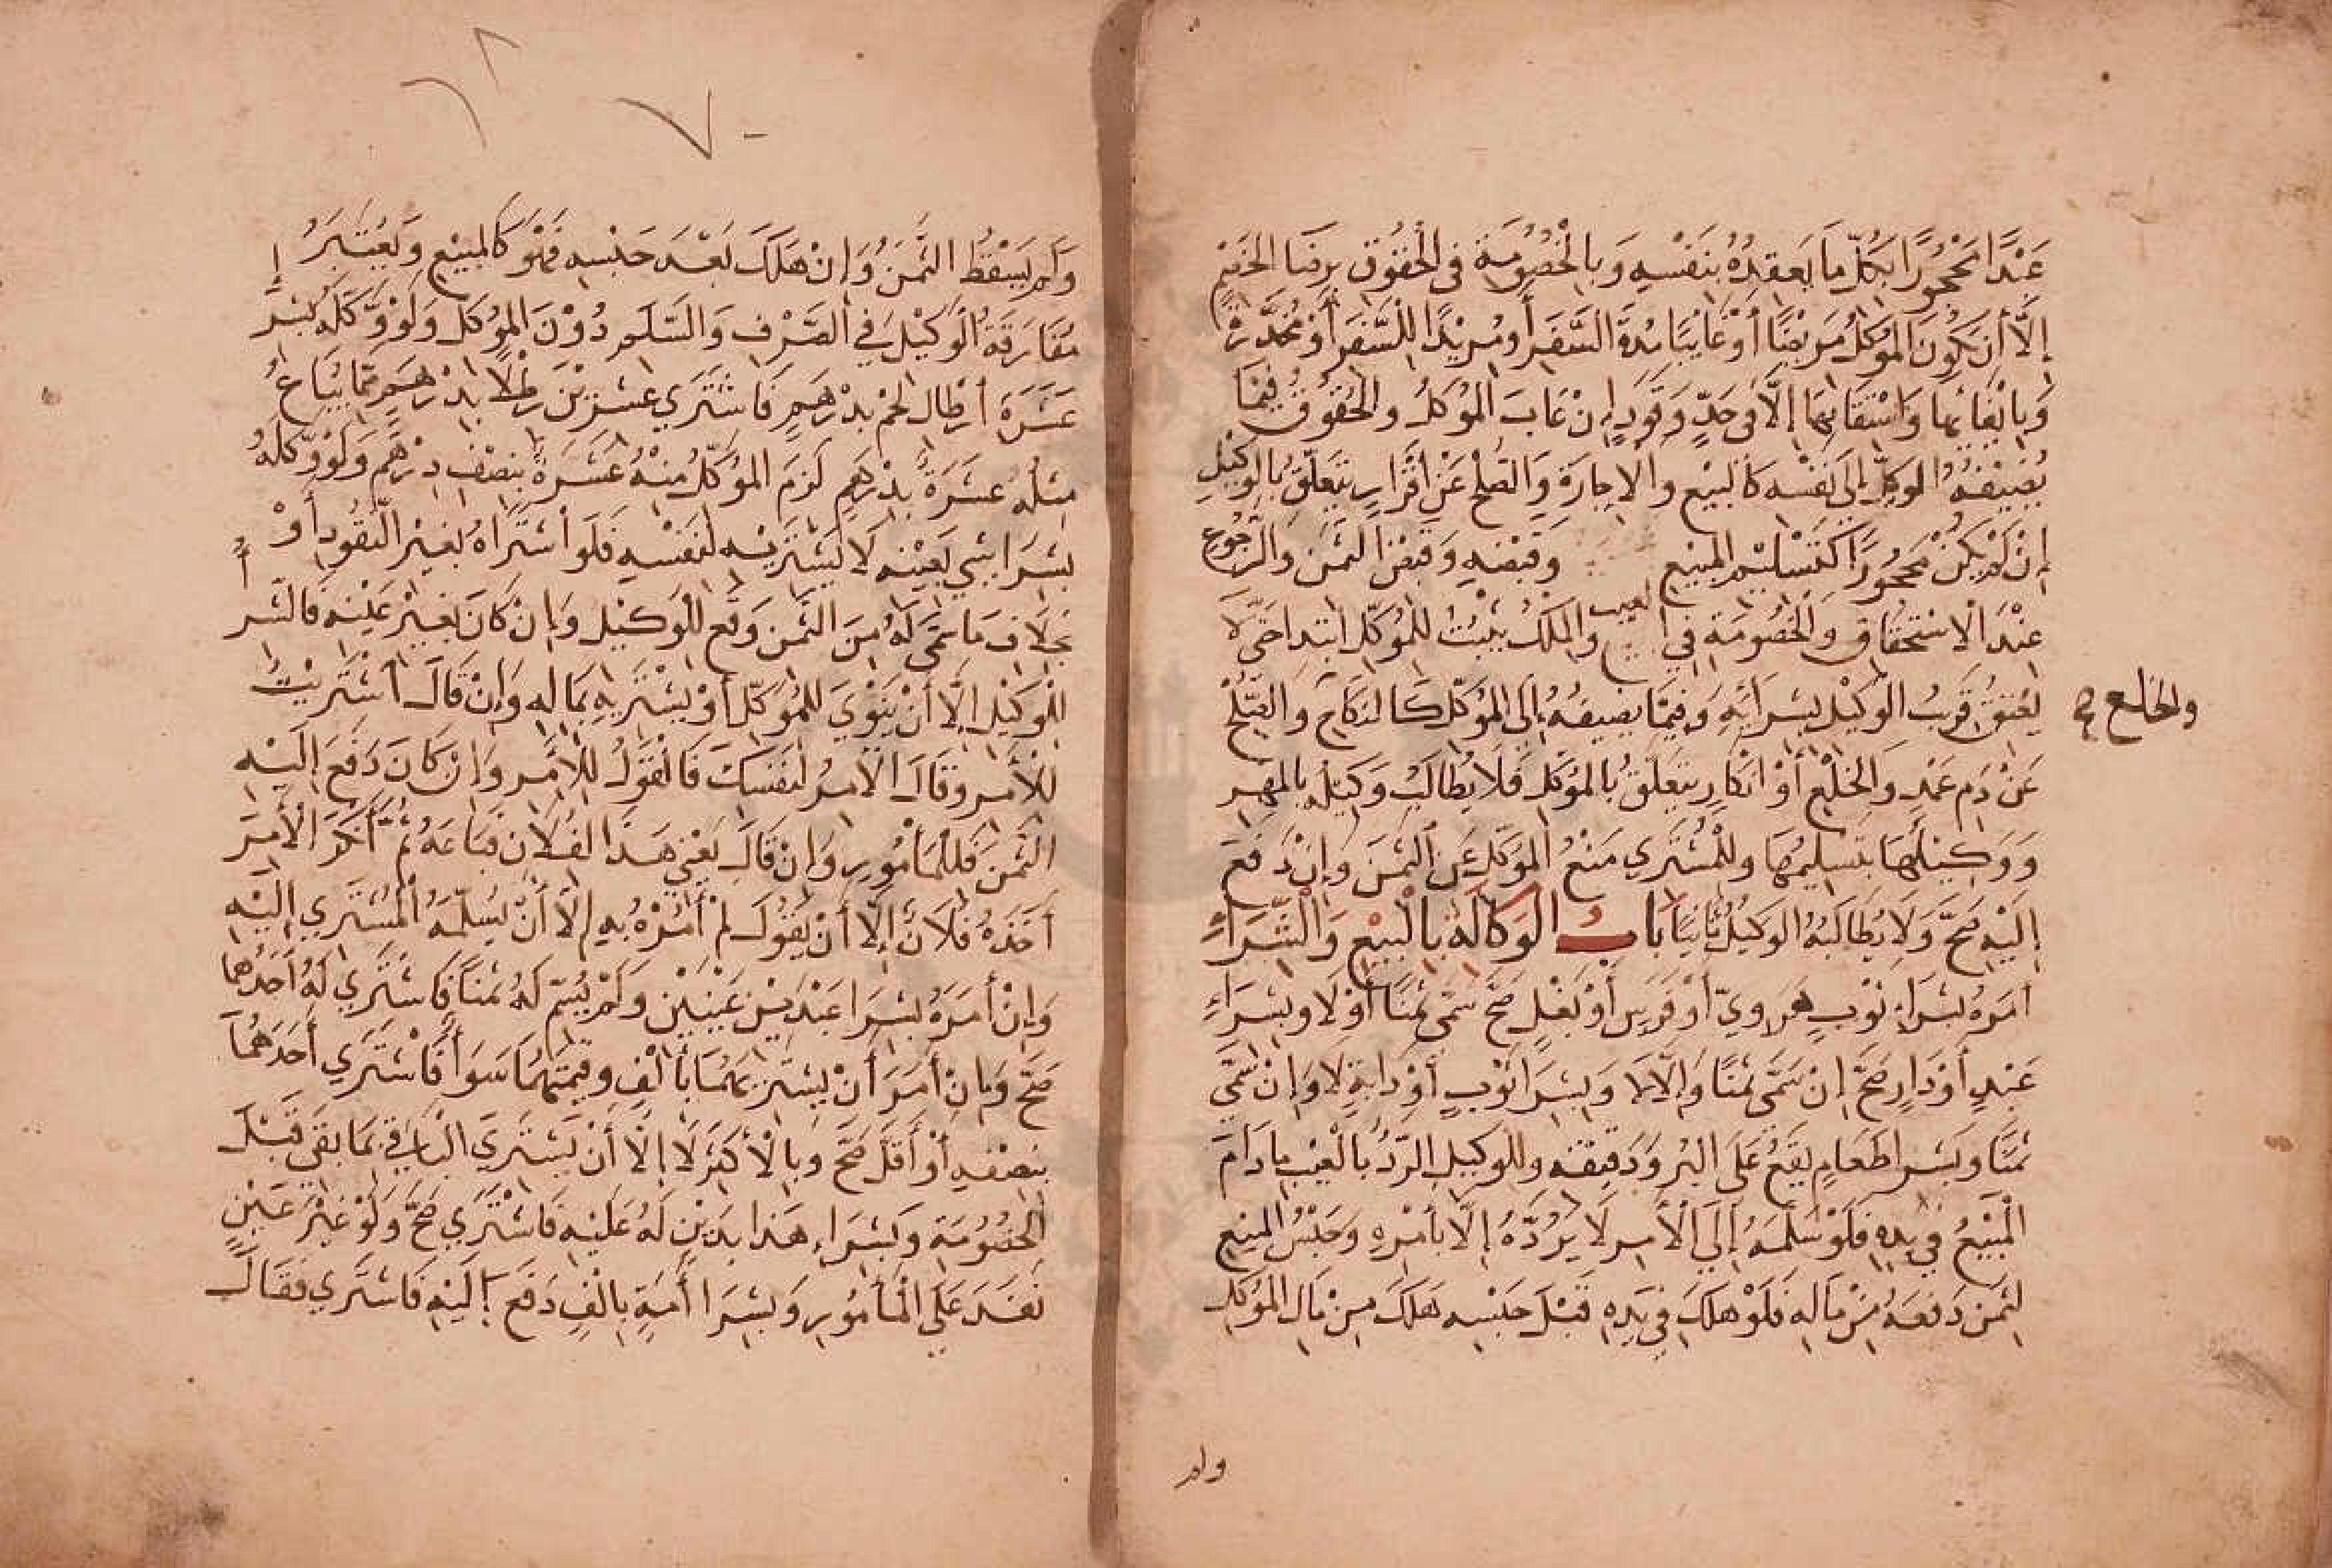 عَبْدًا مَحْجُورًا بِكُلِّ مَا يَعْقِدُهُ بِنَفْسِهِ وَبِالْخُصُومَةِ فِي الْحُقُوقِ بِرِضَا الْخَصْمِ
إِلَّا أَنْ يَكُونَ الْمُوَكِّلُ مَرِيضًا أَوْ غَائِبًا مُدَّةَ السَّفَرِ أَوْ مُرِيْدًا لِلسَّفَرِ أَوْ مُخَدَّرَةً
وَبِإِيْفَائِهَا وَاسْتِيْفَائِهَا إِلَّا فِي حَدٍّ وَقَوَدٍ إِنْ غَابَ الْمُوَكِّلُ وَالْحُقُوقُ فِيْمَا
يُضِيْفُهُ الْوَكِيْلُ إِلَى نَفْسِهِ كَالْبَيْعِ وَالْإِجَارَةِ وَالصُّلْحِ عَنْ إِقْرَارٍ يَتَعَلَّقُ بِالْوَكِيْلِ
إِنْ لَمْ يَكُنْ مَحْجُوْرًا كَتَسْلِيْمِ الْمَبِيْعِ وَقَبْضِهِ وَقَبْضِ الثَّمَنِ وَالرُّجُوعِ
عِنْدَ الْاِسْتِحْقَاقِ وَالْخُصُومَةِ فِي العيب وَالْمِلْكُ يَثْبُتُ لِلْمُوَكِّلِ ابْتِدَاءً حَتَّى لَا
يَعْتِقُ قَرِيْبُ الْوَكِيْلِ بِشِرَائِهِ وَفِيْمَا يُضِيفُهُ إِلَى الْمُوَكِّلِ كَالنِّكَاحِ وَالصُّلْحِ
والخلع
عَنْ دَمِ عَمْدٍ وَالْخُلْعِ أَوْ اِنْكَارٍ يَتَعَلَّقُ بِالْمُوَكِّلِ فَلَا يُطَالَبُ وَكِيْلُهُ بِالْمَهْرِ
وَوَكِيْلُهَا بِتَسْلِيْمِهَا وَلِلْمُشْتَرِي مَنْعُ الْمُوَكِّلِ عَنِ الثَّمَنِ وَإِنْ دَفَعَ
إِلَيْهِ صَحَّ وَلَا يُطَالِبُهُ الْوَكِيْلُ ثَانِيًا بَابُ الْوَكَالَةِ بِالْبَيْعِ وَالشِّرَاءِ
أَمَرَهُ بِشِرَاءِ ثَوْبٍ هَرَوِيٍّ أَوْ فَرَسٍ أَوْ بَغْلٍ صَحَّ سَمَّى ثَمَنًا أَوْ لَا وَبِشِرَاءِ
عَبْدٍ أَوْ دَارٍ صَحَّ إِنْ سَمَّى ثَمَنًا وَإِلَّا لَا وَبِشِرَا ثَوْبٍ أَوْ دَابَّةٍ لَا وَإِنْ سَمَّى
ثَمَنًا وَبِشِرَا طَعَامٍ يَقَعُ عَلَى الْبُرِّ وَدَقِيْقِهِ وَلِلْوَكِيلِ الرَّدُّ بِالْعَيْبِ مَا دَامَ
الْمَبِيْعُ فِي يَدِهِ فَلَوْ سَلَّمَهُ إِلَى الْآمِرِ لَا يَرُدُّهُ إِلَّا بِأَمْرِهِ وَحَبْسُ الْمَبِيْعِ
لِثَمَنٍ دَفَعَهُ مِنْ مَالِهِ فَلَوْ هَلَكَ فِي يَدِهِ قَبْلَ حَبْسِهِ هَلَكَ مِنْ مَالِ الْمُوَكِّلِ
ولم
وَلَمْ يَسْقُطِ الثَّمَنُ وَإِنْ هَلَكَ بَعْدَ حَبْسِهِ فَهُوَ كَالْمَبِيْعِ وَيُعْتَبَرُ
مُفَارَقَةُ الْوَكِيْلِ فِي الصَّرْفِ وَالسَّلَمِ دُوْنَ الْمُوَكِّلِ وَلَوْ وَكَّلَهُ بِشِرَ
عَشَرَةِ أَرْطَالِ لَحْمٍ بِدِرْهَمٍ فَاشْتَرَى عِشْرِيْنَ رِطْلًا بِدِرْهَمٍ مِمَّا يُبَاعُ
مِثْلُهُ عَشَرَةً بِدِرْهَمٍ لَزِمَ الْمُوَكِّلَ مِنْهُ عَشَرَةٌ بِنِصْفِ دِرْهَمٍ وَلَوْ وَكَّلَهُ
بِشِرَا شَيْءٍ بِعَيْنِهِ لَا يَشْتَرِيْهِ لِنَفْسِهِ فَلَوِ اشْتَرَاهُ بِغَيْرِ النُّقُودِ أَوْ
بِخِلَافِ مَا سَمَّى لَهُ مِنَ الثَّمَنِ وَقَعَ لِلْوَكِيْلِ وَإِنْ كَانَ بِغَيْرِ عَيْنِهِ فَالشِّرَ
لِلْوَكِيْلِ إِلَّا أَنْ يَنْوِيَ لِلْمُوَكِّلِ أَوْ يَشْتَرِيَهُ بِمَالِهِ وَإِنْ قَالَ اشْتَرَيْتُ
لِلْآمِرِ وَقَالَ الْآمِرُ لِنَفْسِكَ فَالْقَوْلُ لِلْآمِرِ وَإِنْ كَانَ دَفَعَ إِلَيْهِ
الثَّمَنَ فَلِلْمَأْمُورِ وَإِنْ قَالَ بِعْنِي هَذَا لِفُلَانٍ فَبَاعَهُ ثُمَّ أَنْكَرَ الْأَمْرَ
أَخَذَهُ فُلَانٌ إِلَّا أَنْ يَقُوْلَ لَمْ آمُرْهُ بِهِ إِلَّا أَنْ يُسَلِّمَهُ الْمُشْتَرِي إِلَيْهِ
وَإِنْ أَمَرَهُ بِشِرَا عَبْدَيْنِ عَيْنَيْنِ وَلَمْ يُسَمِّ لَهُ ثَمَنًا فَاشْتَرَى لَهُ أَحَدَهُمَا
صَحَّ وَإِنْ أَمَرَ أَنْ يَشْتَرِيَهُمَا بِأَلْفٍ وَقِيْمَتُهُمَا سَوَاءٌ فَاشْتَرَى أَحَدَهُمَا
بِنِصْفِهِ أَوْ أَقَلَّ صَحَّ وَبِالْأَكْثَرِ لَا إِلَّا أَنْ يَشْتَرِيَ الْبَاقِي بِمَا بَقِيَ قَبْلَ
الْخُصُوْمَةِ وَبِشِرَاءِ هَذَا بِدَيْنٍ لَهُ عَلَيْهِ فَاشْتَرَى صَحَّ وَلَوْ غَيْرَ عَيْنٍ
نَفَذَ عَلَى الْمَأْمُورِ وَبِشِرَا أَمَةٍ بِأَلْفٍ دَفَعَ إِلَيْهِ فَاشْتَرَى فَقَالَ